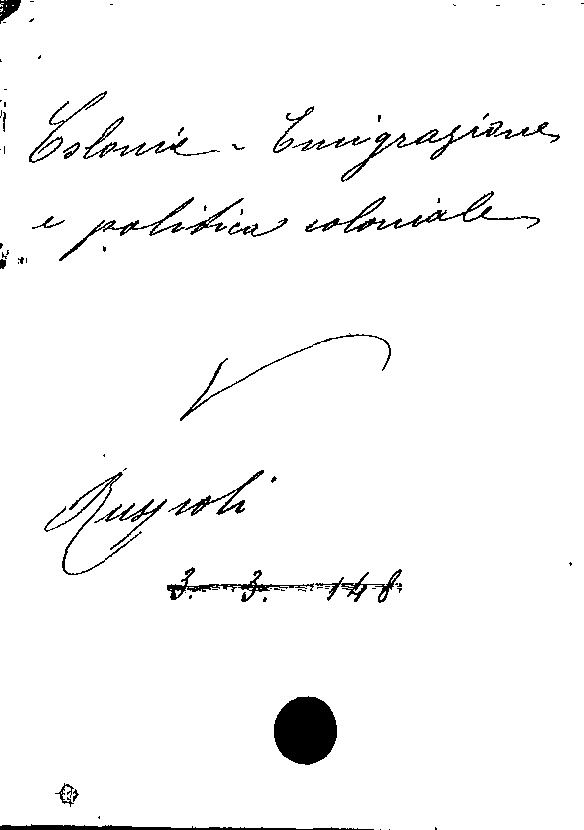 Colonie - Emigrazione
e politica coloniale
V
Ruspoli
3. 3. 148